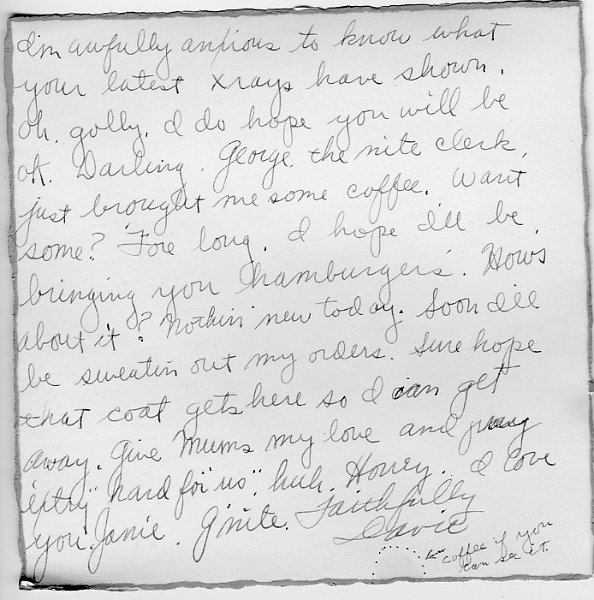 I'm awfully anxious to know what
your latest xrays have shown.
Oh, golly, I do hope you will be
ok. Darling. George, the nite clerk,
just brought me some coffee. Want
some? 'Fore long, I hope I'll be
bringing you "hamburgers". Hows
about it? Nothin' new today. Soon I'll
be sweatin out my orders. Sure hope
that coat gets here so I can get
away. Give Mums my love and pray
"extry" hard for "us", huh, Honey. I love
you, Janie. G'nite. Faithfully
David
coffee if you
can see it.